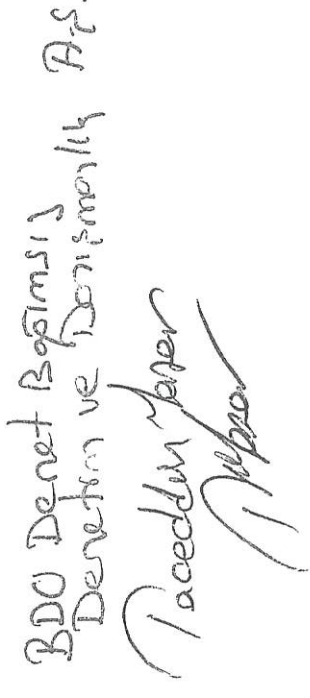 BDO Denet Bağımsız
Denetim ve Danışmanlık A.Ş.
Taceddin Yazar